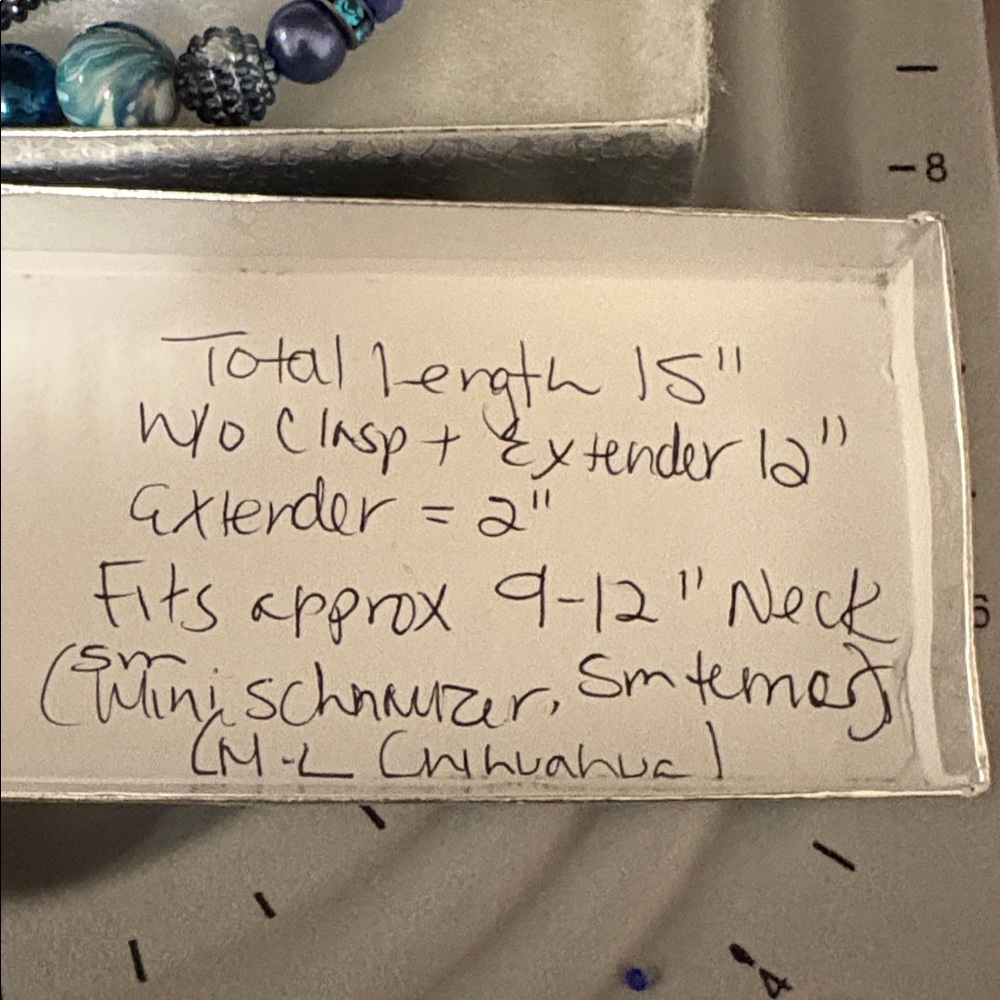 - 8
Total Length 15"
w/o Clasp + Extender 12"
Extender = 2"
Fits approx 9-12" Neck
6
(sm Mini schnauzer, sm terrier)
(M-L Chihuahua)
4